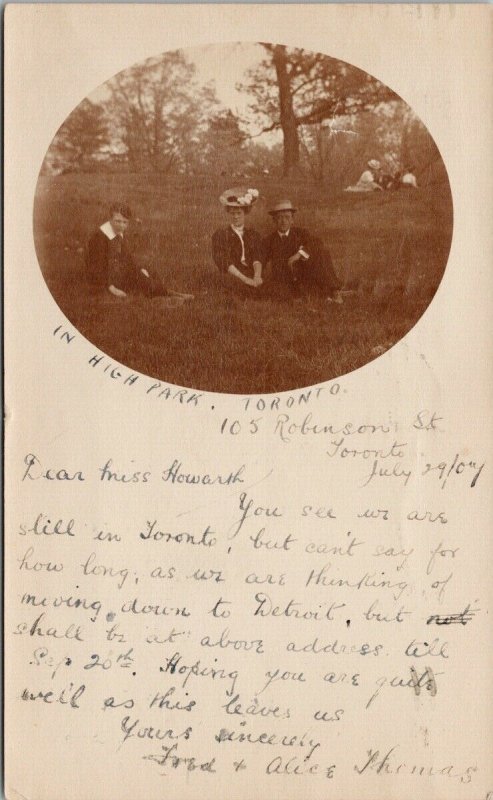 IN HIGH PARK. TORONTO.
105 Robinson St
Toronto
July 29/07
Dear Miss Howarth
You see we are
still in Toronto, but can't say for
how long, as we are thinking of
moving down to Detroit, but not
shall be "at" above address till
Sep 20th. Hoping you are quite
well as this leaves us
Yours sincerely
Fred + Alice Thomas